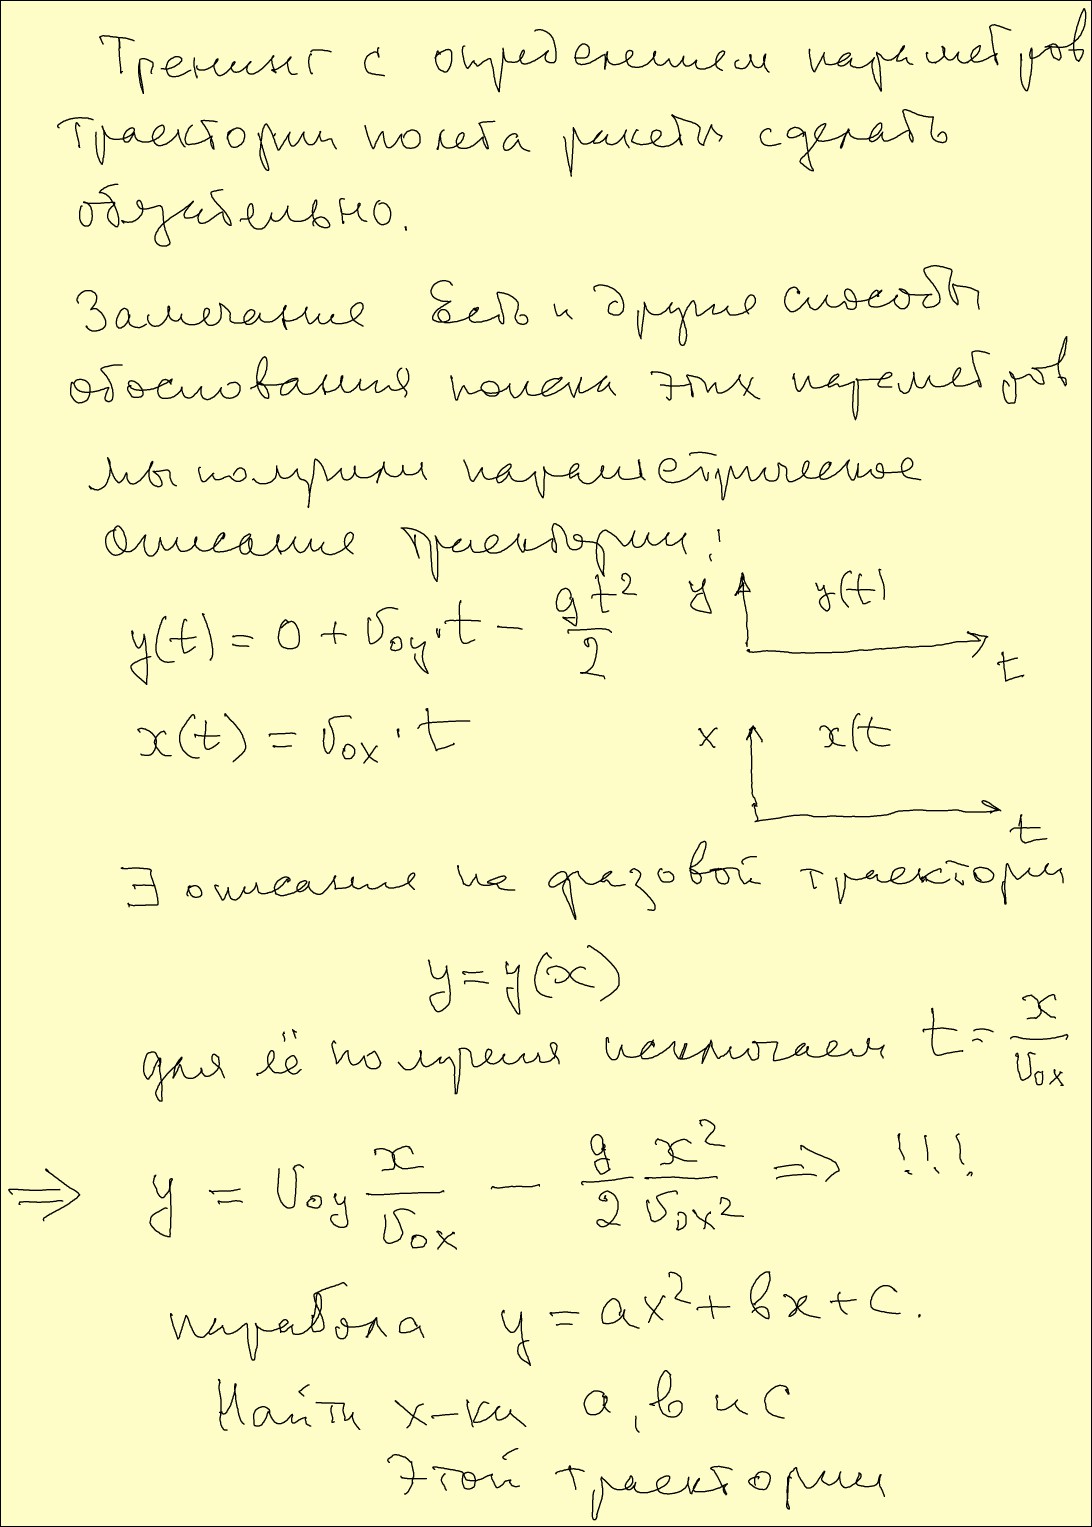 Тренинг с определением параметров
траектории полета ракеты сделать
обязательно.
Замечание Есть и другие способы
обоснования поиска этих параметров
мы получили параметрическое
описание траектории:
y(t) = 0 + v₀y·t − gt²/2
y y(t) t
x(t) = v₀x · t
x x(t t
∃ описание на фазовой траектории
y = y(x)
для её получения исключаем t = x/v₀x
⇒ y = v₀y x/v₀x − g/2 x²/v₀x² ⇒ !!!
парабола y = ax² + bx + c.
Найти х-ки a, b и c
Этой траектории